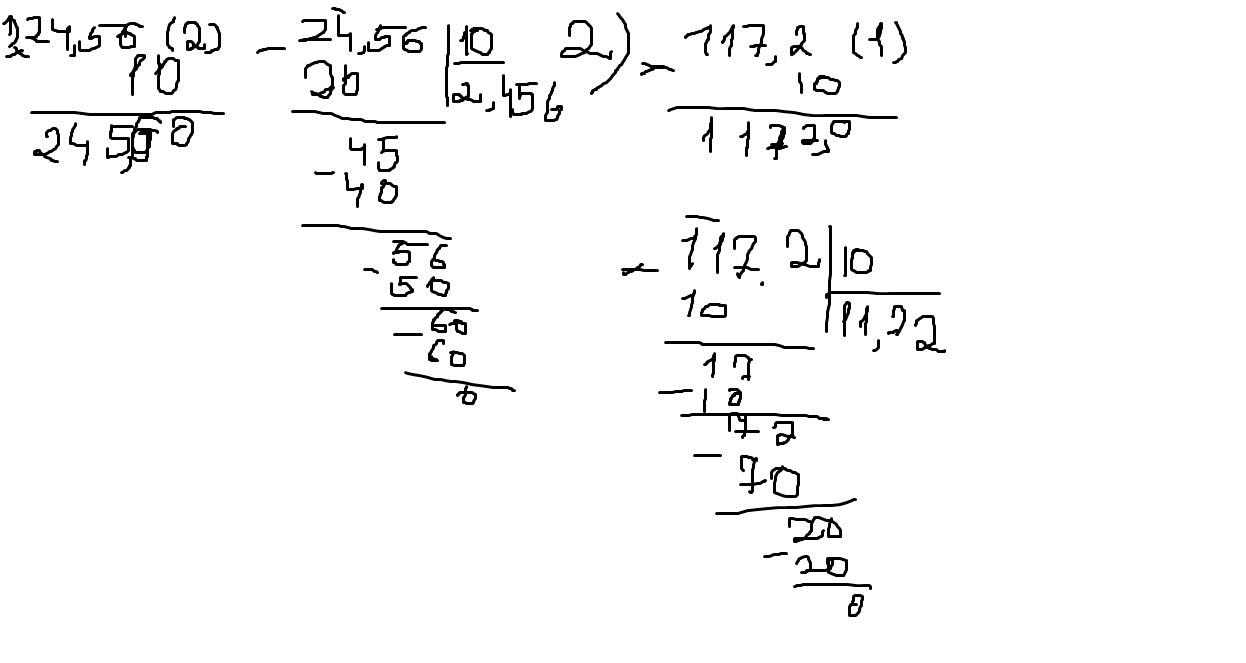 1) 24,56 (2)
× 10
245,60
- 24,56 | 10
20 | 2,456
- 45
40
- 56
50
- 60
60
0
2)
× 117,2 (1)
10
1172,0
- 117.2 | 10
10 | 11,72
17
- 10
72
- 70
20
- 20
0